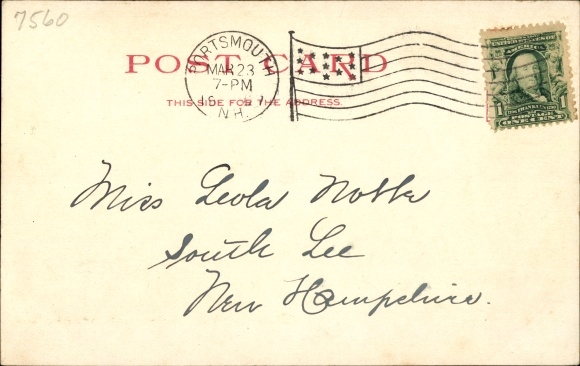 7560
POST CARD
PORTSMOUTH
MAR 23
7-PM
N.H.
THIS SIDE FOR THE ADDRESS.
UNITED STATES OF
AMERICA
FRANKLIN
POSTAGE
1 ONE CENT 1
Miss Leola Noble
South Lee
New Hampshire.